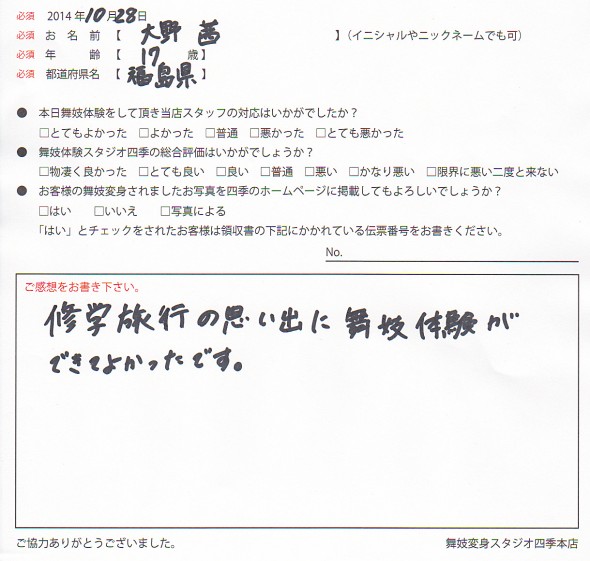 必須 2014年10月28日
必須 お名前【 大野 茜 】(イニシャルやニックネームでも可)
必須 年齢【 17 歳】
必須 都道府県名【 福島県 】
● 本日舞妓体験をして頂き当店スタッフの対応はいかがでしたか？
□とてもよかった □よかった □普通 □悪かった □とても悪かった
● 舞妓体験スタジオ四季の総合評価はいかがでしょうか？
□物凄く良かった □とても良い □良い □普通 □悪い □かなり悪い □限界に悪い二度と来ない
● お客様の舞妓変身されましたお写真を四季のホームページに掲載してもよろしいでしょうか？
□はい □いいえ □写真による
「はい」とチェックをされたお客様は領収書の下記にかかれている伝票番号をお書きください。
No.
ご感想をお書き下さい。
修学旅行の思い出に舞妓体験が
できてよかったです。
ご協力ありがとうございました。 舞妓変身スタジオ四季本店